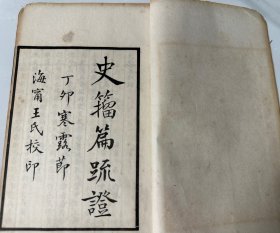 史籒篇疏證
丁卯寒露節
海甯王氏校印